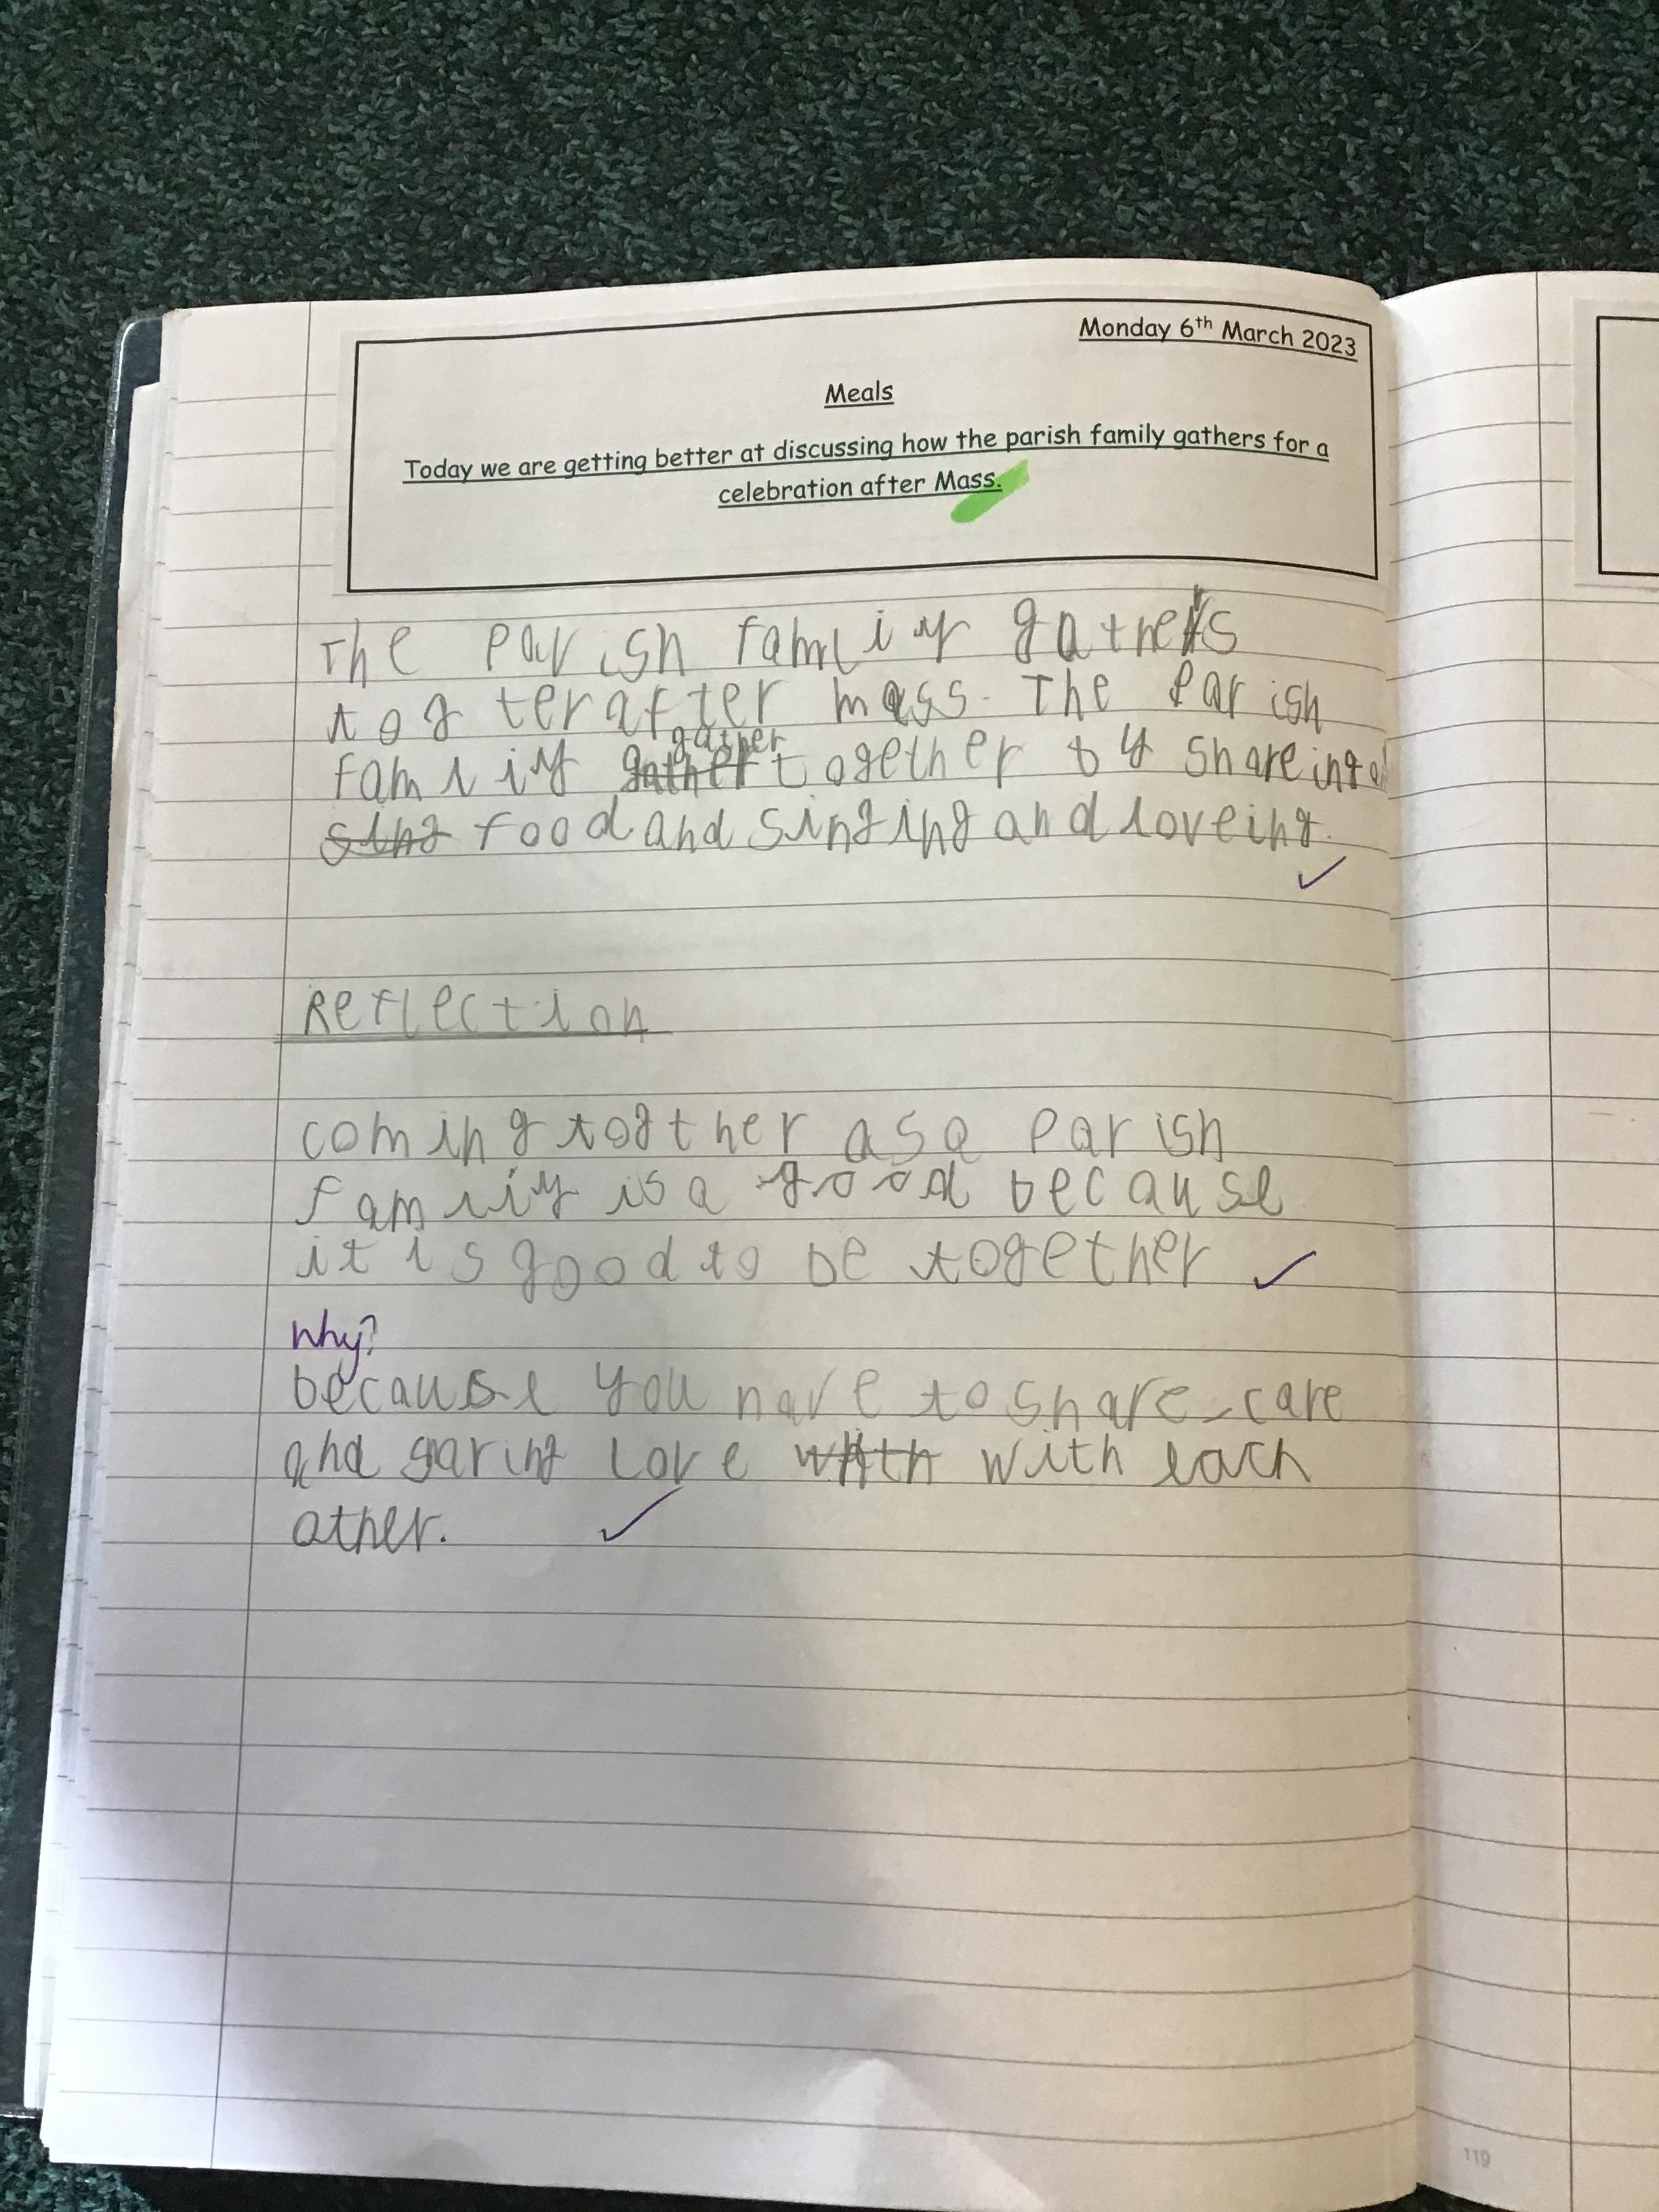 Monday 6th March 2023
Meals
Today we are getting better at discussing how the parish family gathers for a
celebration after Mass.
The parish family gathers
togter after mass. The Parish
gather
family together by shareing
food and singing and loveing.
Reflection
coming togther as a parish
family is a good because
it is good to be together
why?
because you have to share care
and sharing Love with each
other.
119